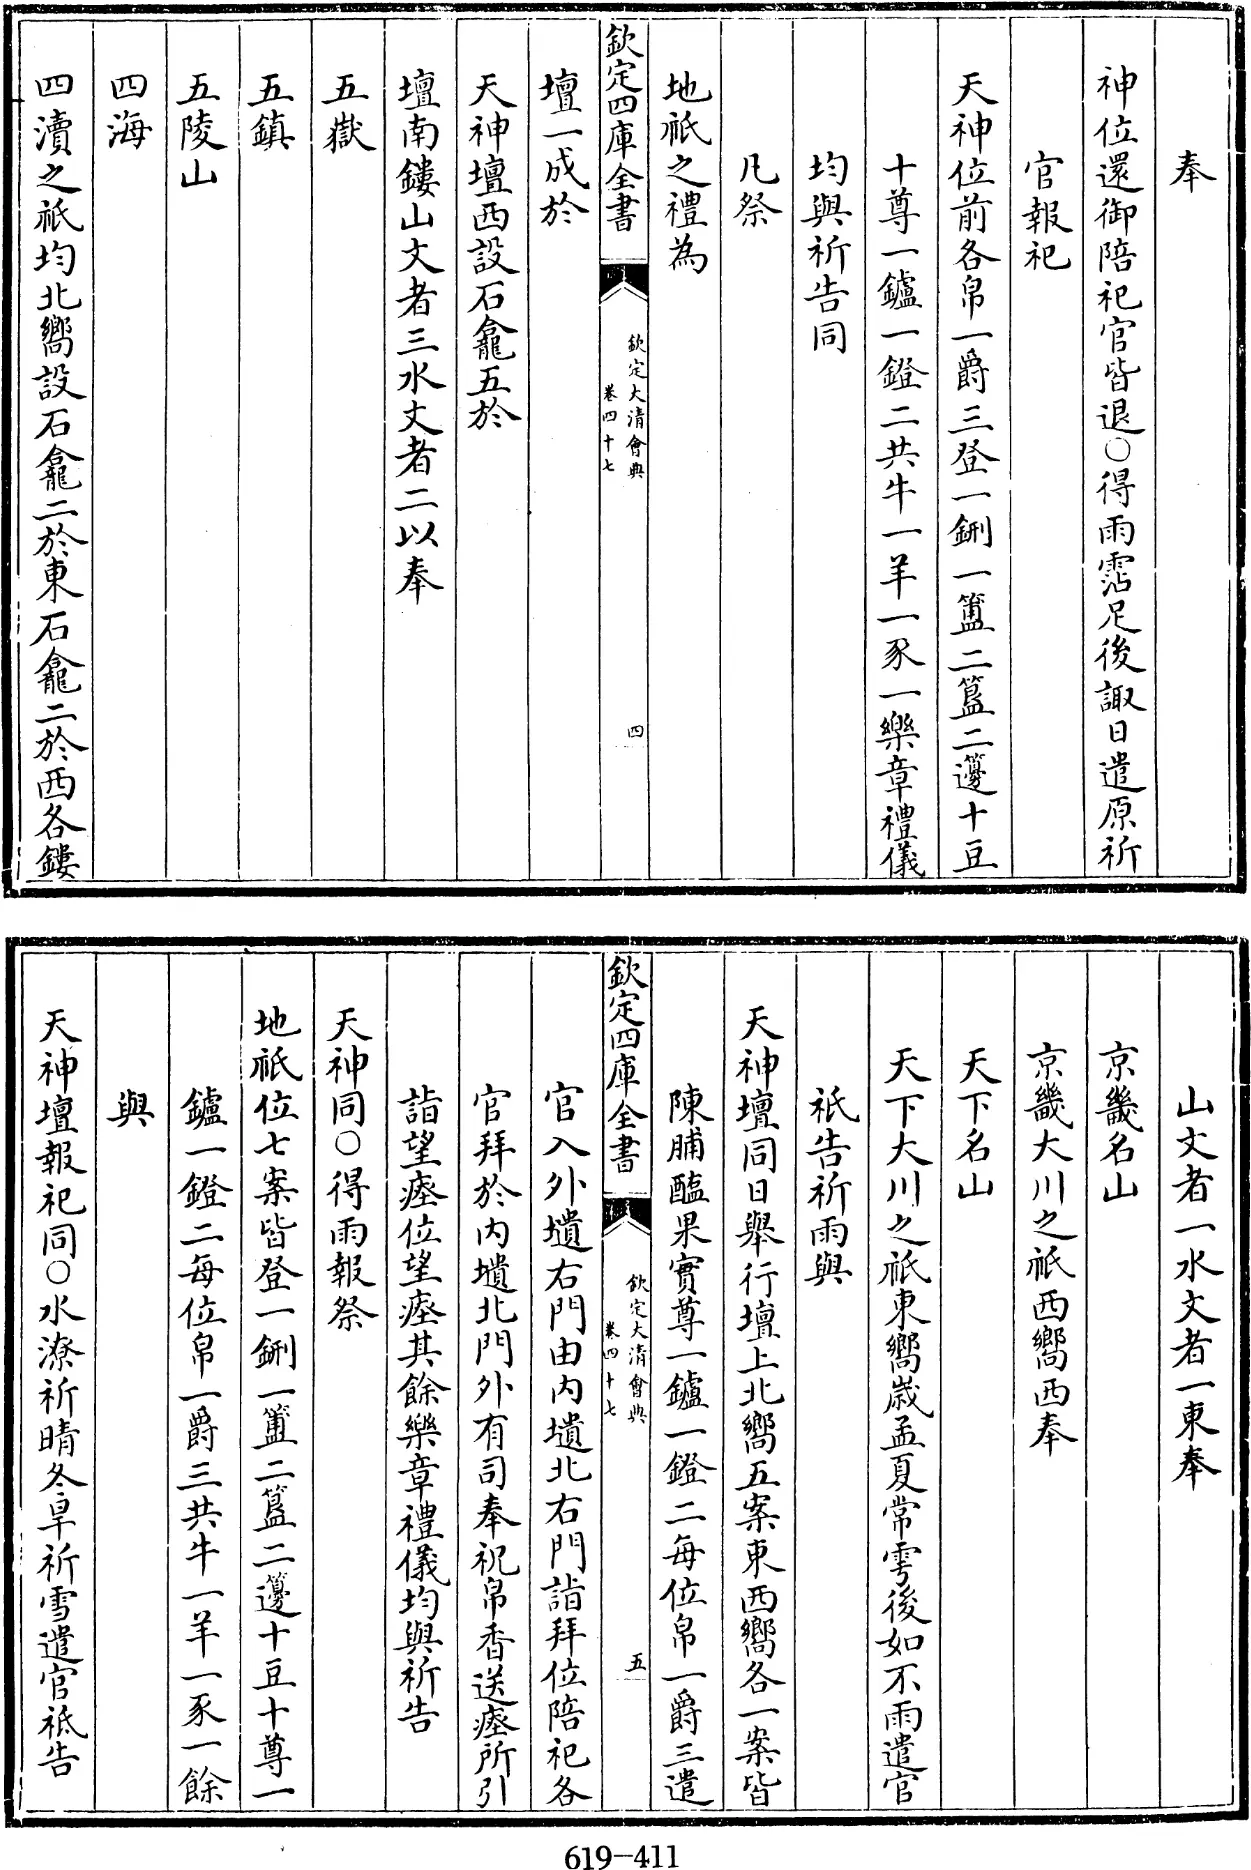 奉
神位還御陪祀官皆退○得雨霑足後諏日遣原祈
官報祀
天神位前各帛一爵三登一鉶一簠二簋二籩十豆
十尊一鑪一鐙二共牛一羊一豕一樂章禮儀
均與祈告同
凡祭
地祇之禮為
欽定四庫全書
欽定大清會典
卷四十七
四
壇一成於
天神壇西設石龕五於
壇南鏤山文者三水文者二以奉
五嶽
五鎮
五陵山
四海
四瀆之祇均北嚮設石龕二於東石龕二於西各鏤
山文者一水文者一東奉
京畿名山
京畿大川之祇西嚮西奉
天下名山
天下大川之祇東嚮歲孟夏常雩後如不雨遣官
祇告祈雨與
天神壇同日舉行壇上北嚮五案東西嚮各一案皆
陳脯醢果實尊一鑪一鐙二每位帛一爵三遣
欽定四庫全書
欽定大清會典
卷四十七
五
官入外壝右門由內壝北右門詣拜位陪祀各
官拜於內壝北門外有司奉祝帛香送瘞所引
詣望瘞位望瘞其餘樂章禮儀均與祈告
天神同○得雨報祭
地祇位七案皆登一鉶一簠二簋二籩十豆十尊一
鑪一鐙二每位帛一爵三共牛一羊一豕一餘
與
天神壇報祀同○水潦祈晴冬旱祈雪遣官祗告
619-411